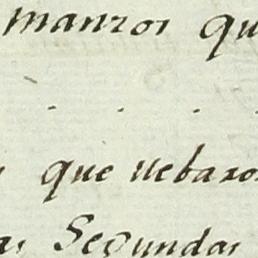 manzos qu
que uebazon
Segundas